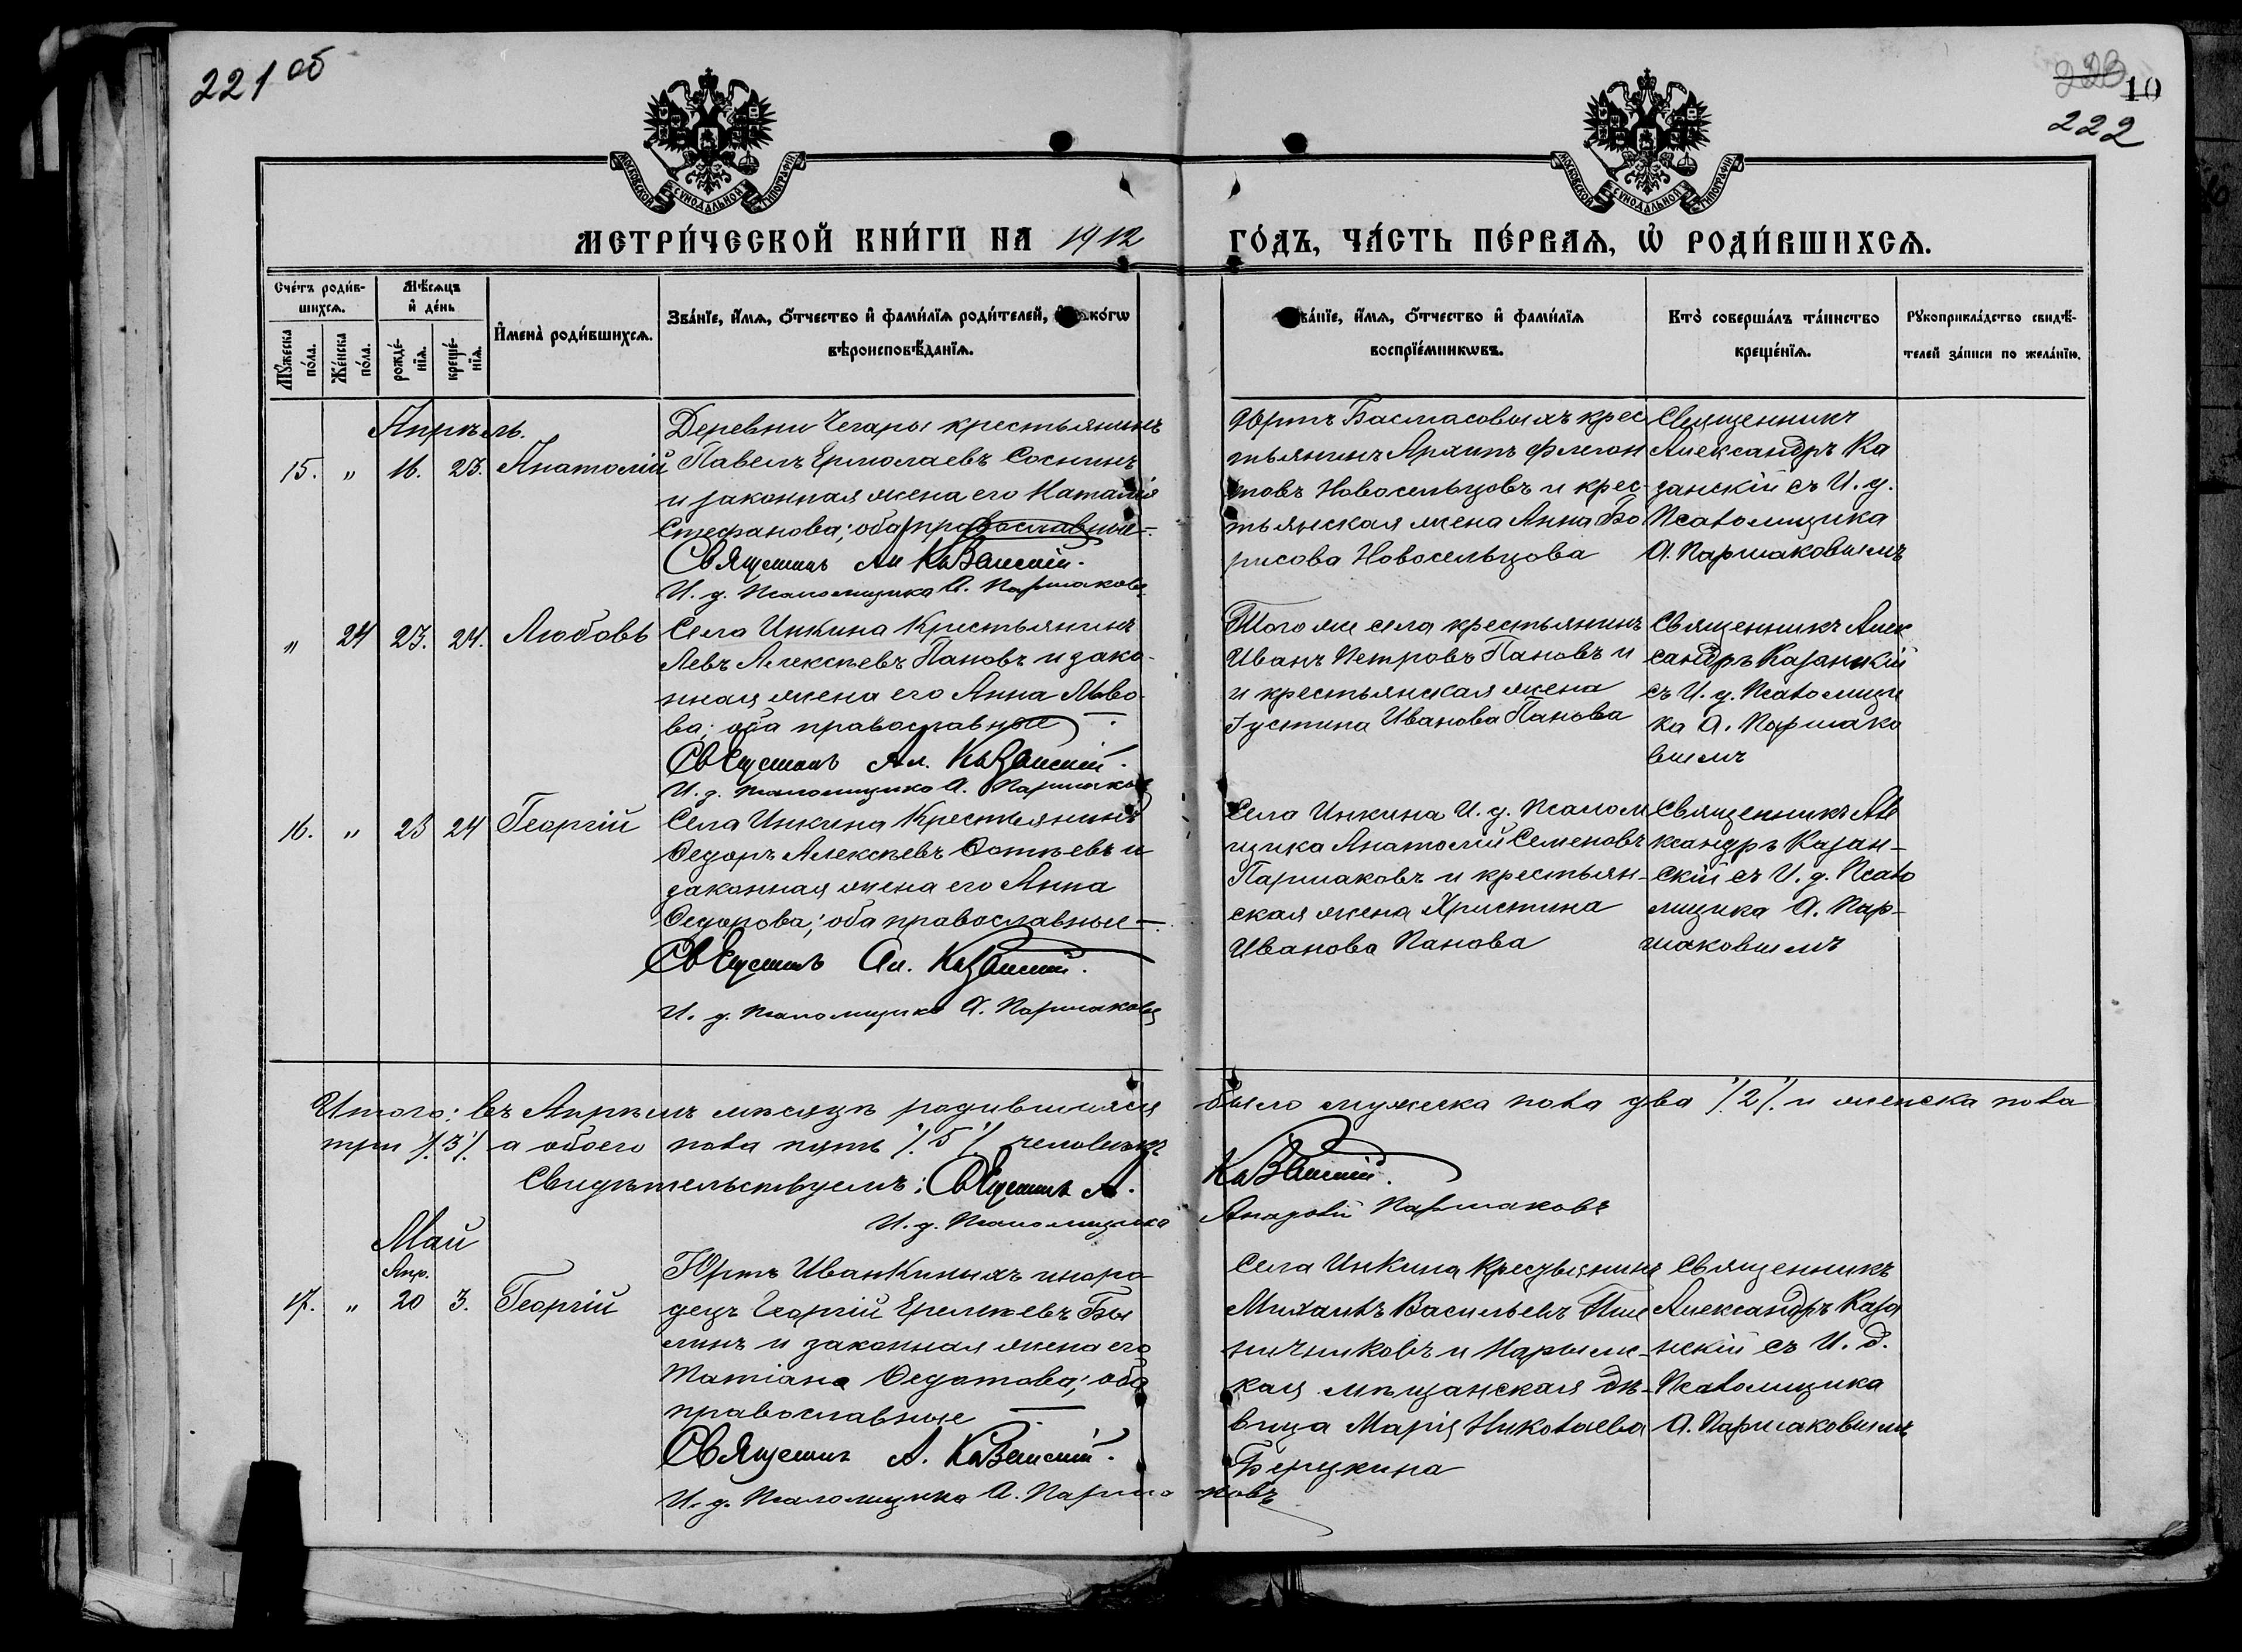 221 об
10
222
МОСКОВСКОЙ СѴНОДАЛЬНОЙ ТИПОГРАФІИ
МОСКОВСКОЙ СѴНОДАЛЬНОЙ ТИПОГРАФІИ
МЕТРИ́ЧЕСКОЙ КНИ́ГИ НА 1912 ГО́ДЪ, ЧА́СТЬ ПЕ́РВАѦ, Ѡ РОДИ́ВШИХСѦ.
Сче́тъ роди́в-
шихсѧ.
Мꙋ́жеска по́ла.
Же́нска по́ла.
Мѣ́сѧцъ
и де́нь
рожде́-
нїѧ.
креще́-
нїѧ.
Имена̀ роди́вшихсѧ.
Зва́нїе, и́мѧ, ѻ́тчество и фами́лїѧ роди́телей, и како́гѡ
вѣроисповѣ́данїѧ.
Зва́нїе, и́мѧ, ѻ́тчество и фами́лїѧ
воспрїе́мникѡвъ.
Кто̀ соверша́лъ та́инство
креще́нїѧ.
Рꙋкоприкла́дство свидѣ́-
телей за́писи по жела́нїю.
Апрѣль.
15. " 16. 23. Анатолій
Деревни Чегары крестьянинъ
Павелъ Ермолаевъ Соснинъ
и законная жена его Наталія
Стефанова; оба православные.
Священникъ Ал Казанскій.
И. д. псаломщика А. Паршаковъ
Юртъ Басмасовыхъ крес
тьянинъ Архипъ Флегон
товъ Новосельцовъ и крес-
тьянская жена Анна Бо
рисова Новосельцова
Священникъ
Александръ Ка
занскій съ И. д.
Псаломщика
А. Паршаковымъ
" 24 23. 24. Любовь
Села Инкина Крестьянинъ
Левъ Алексѣевъ Пановъ и зако-
нная жена его Анна Льво-
ва; оба православные
Священникъ Ал. Казанскій.
И. д. псаломщика А. Паршаковъ
Того же села крестьянинъ
Иванъ Петровъ Пановъ и
и крестьянская жена
Іустина Иванова Панова
Священникъ Алек
сандръ Казанскій
съ И. д. Псаломщи
ка А. Паршако
вымъ
16. " 23 24 Георгій
Села Инкина Крестьянинъ
Ѳедоръ Алексѣевъ Ѳотѣевъ и
законная жена его Анна
Ѳедорова; оба православные
Священникъ Ал. Казанскій.
И. д. псаломщика А. Паршаковъ
Села Инкина И. д. Псалом
щика Анатолій Семеновъ
Паршаковъ и крестьян-
ская жена Христина
Иванова Панова
Священникъ Але
ксандръ Казан-
скій съ И. д. Псало
мщика А. Пар-
шаковымъ
Итого: въ Апрѣлѣ мѣсяцѣ родившихся было мужеска пола два ./.2./. и женска пола
три ./.3./. а обоего пола пять ./.5./. человѣкъ
Свидѣтельствуемъ: Священникъ А. Казанскій.
И. д. Псаломщика Анатолій Паршаковъ
Май
Апр.
17. " 20 3. Георгій
Юртъ Иванкиныхъ иноро-
децъ Георгій Еремѣевъ Бы
линъ и законная жена его
Татіана Ѳедотова; оба
православные
Священникъ А. Казанскій.
И. д. Псаломщика А. Паршаковъ
Села Инкина Крестьянинъ
Михаилъ Васильевъ Пше
ничниковъ и Нарымс-
кая мѣщанская дѣ-
вица Марія Николаева
Священникъ
Александръ Каза
нскій съ И. д.
Псаломщика
А. Паршаковымъ